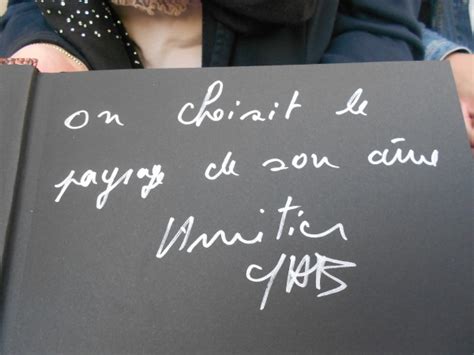 on choisit le
paysage de son âme
Amitiés
YAB